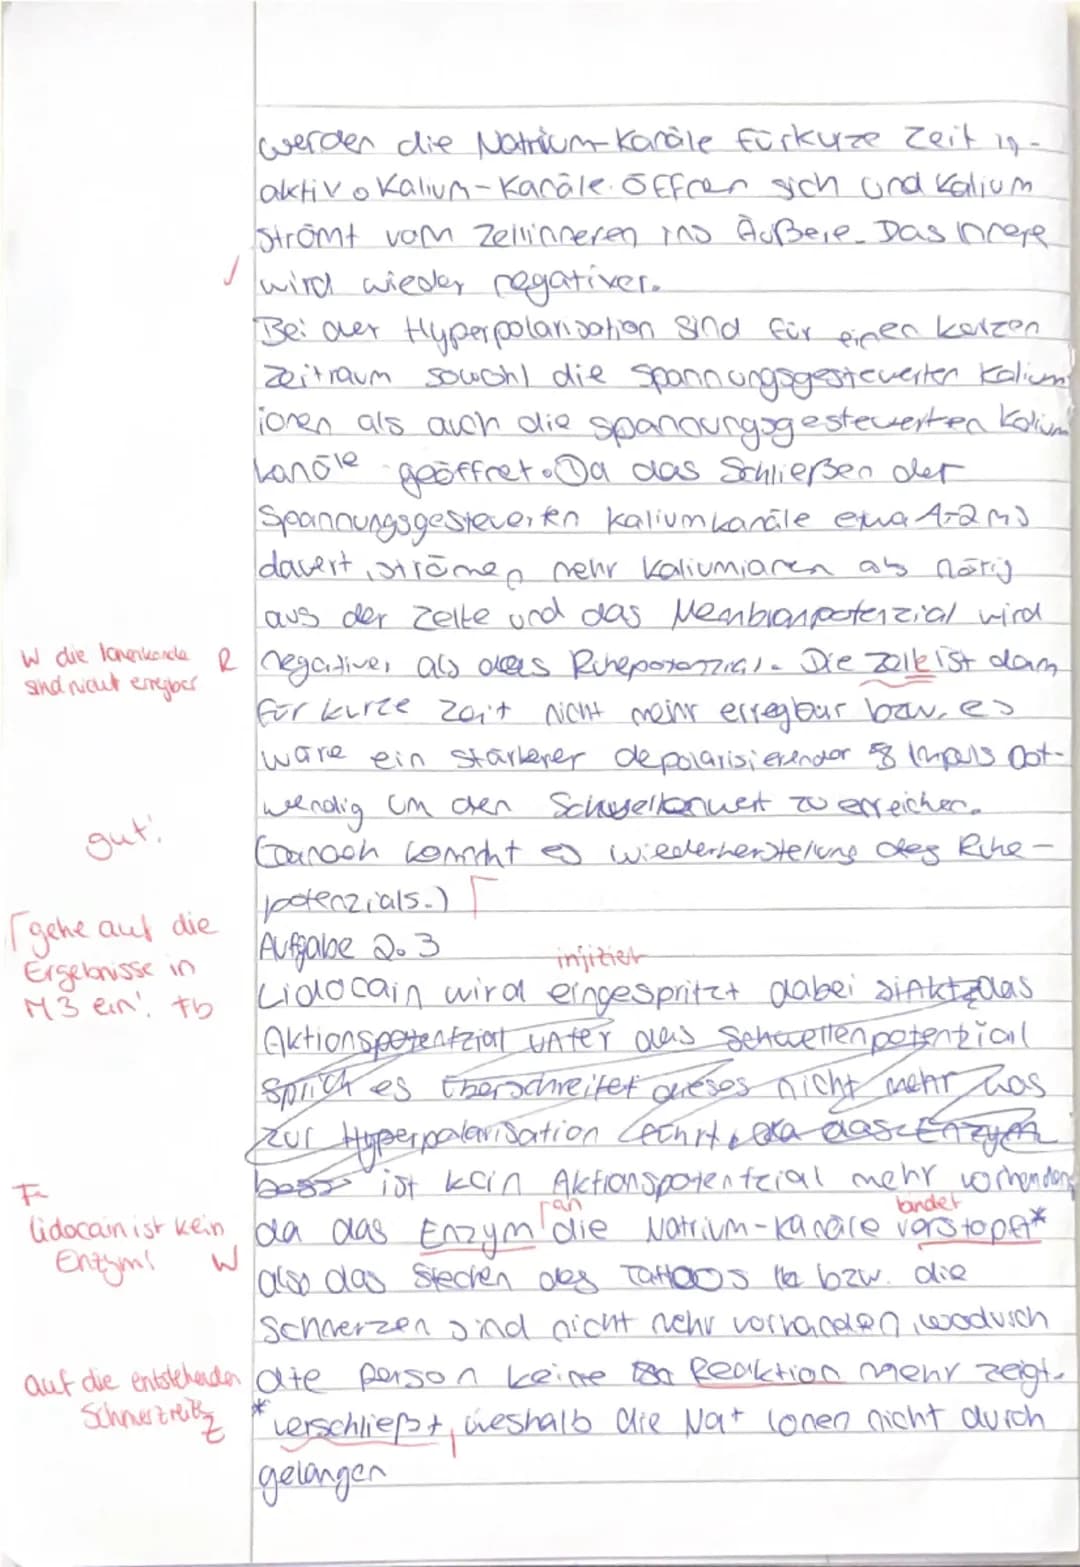 werden die Natrium-Kanäle für kurze Zeit in-
aktiv. Kalium-Kanäle. Öffnen sich und Kalium
strömt vom Zellinneren ins Äußere. Das Innere
✓ wird wieder negativer.
Bei der Hyperpolarisation sind für einen kurzen
Zeitraum sowohl die spannungsgesteuerten Kalium
ionen als auch die spannungsgesteuerten Kalium
kanäle geöffnet. Da das Schließen der
Spannungsgesteuerten Kaliumkanäle etwa 1-2 ms
dauert, strömen mehr Kaliumionen als nötig
aus der Zelle und das Membranpotenzial wird
W die Ionenkanäle R negativer als das Ruhepotenzial. Die Zelle ist dann
sind nicht erregbar
für kurze Zeit nicht mehr erregbar bzw. es
wäre ein stärkerer depolarisierender Impuls not-
wendig um den Schwellenwert zu erreichen.
gut!
Danach kommt es wiederherstellung des Ruhe-
potenzials.) Γ
Γ gehe auf die
Ergebnisse in
M3 ein! fb
Aufgabe 2.3
injiziert
Lidocain wird eingespritzt dabei sinkt das
Aktionspotentzial unter das Schwellenpotenzial
sprich es überschreitet dieses nicht mehr was
zur Hyperpolarisation führt, da das Enzym
ist kein Aktionspotentzial mehr vorhanden,
Γan bindet
F
Lidocain ist kein
Enzym! W
da das Enzym die Natrium-Kanäle verstopft*
also das Stechen des Tattoos bzw. die
Schmerzen sind nicht mehr vorhanden, wodurch
auf die entstehenden
Schmerzreize Z
die Person keine Reaktion mehr zeigt.
* verschließt, weshalb die Na+ Ionen nicht durch
gelangen